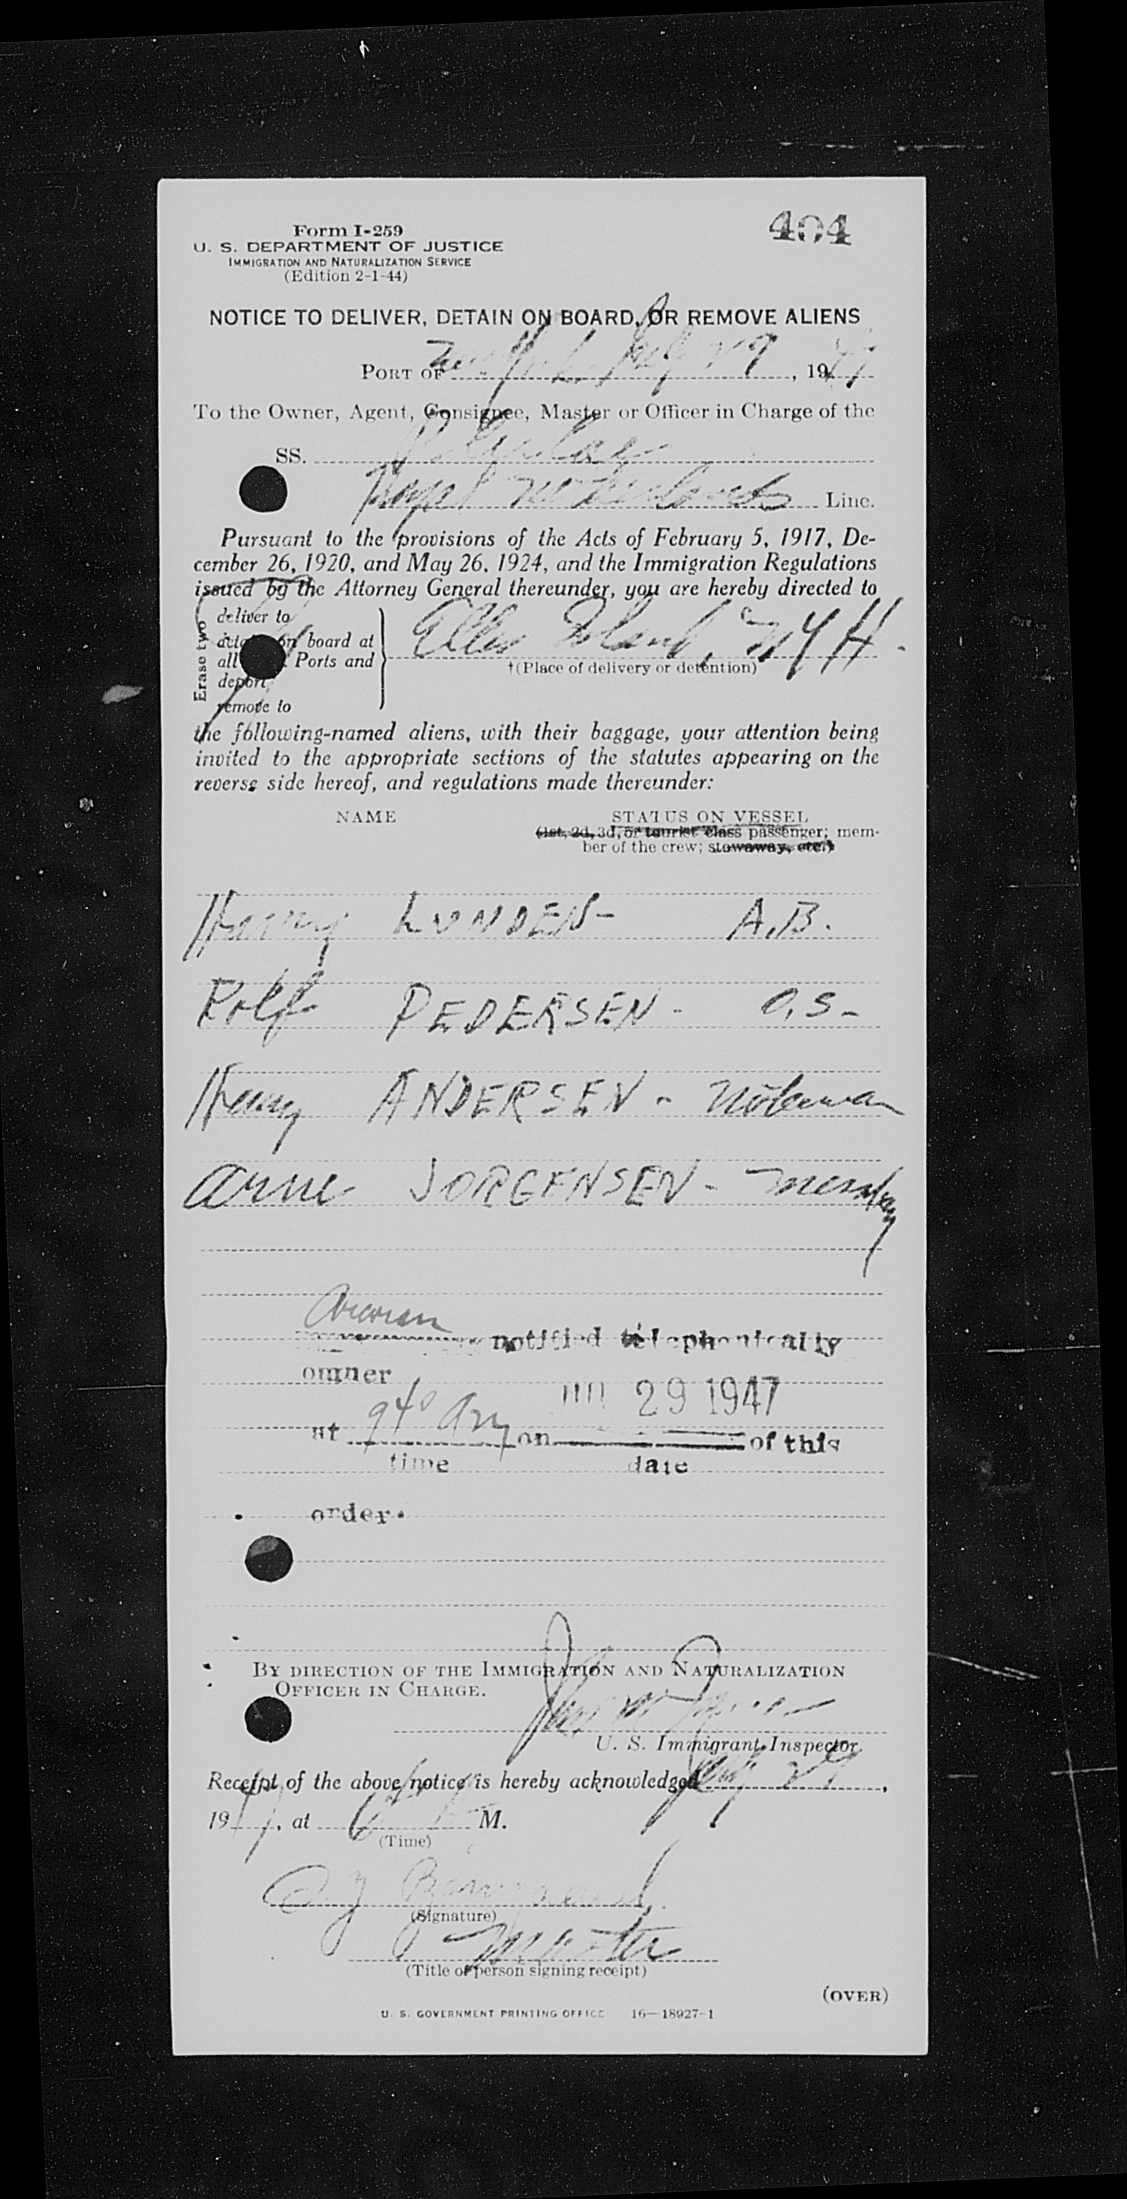 404
Form I-259
U. S. DEPARTMENT OF JUSTICE
IMMIGRATION AND NATURALIZATION SERVICE
(Edition 2-1-44)
NOTICE TO DELIVER, DETAIN ON BOARD, OR REMOVE ALIENS
PORT OF New York July 29, 1947
To the Owner, Agent, Consignee, Master or Officer in Charge of the
SS.
Royal Netherlands Line.
Pursuant to the provisions of the Acts of February 5, 1917, De-
cember 26, 1920, and May 26, 1924, and the Immigration Regulations
issued by the Attorney General thereunder, you are hereby directed to
Erase two
deliver to
on board at
all Ports and
deport
remove to
Ellis Island, NYH.
†(Place of delivery or detention)
the following-named aliens, with their baggage, your attention being
invited to the appropriate sections of the statutes appearing on the
reverse side hereof, and regulations made thereunder:
NAME STATUS ON VESSEL
(1st, 2d, 3d, or tourist class passenger; mem-
ber of the crew; stowaway, etc.)
Harry LUNDEN- A.B.
Rolf PEDERSEN - O.S-
Henry ANDERSEN -
Arne JORGENSEN -
notified telephonically
owner
at 940 am on JUL 29 1947 of this
time date
order.
BY DIRECTION OF THE IMMIGRATION AND NATURALIZATION
OFFICER IN CHARGE.
U. S. Immigrant Inspector.
Receipt of the above notice is hereby acknowledged July 29,
1947, at M.
(Time)
(Signature)
Master
(Title of person signing receipt)
(OVER)
U. S. GOVERNMENT PRINTING OFFICE 16—18927-1